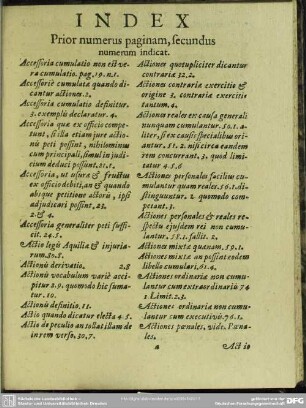 INDEX
Prior numerus paginam, secundus
numerum indicat.
Accessoria cumulatio non est ve-
ra cumulatio. pag. 19. n. 1.
Accessoriè cumulata quando di-
cantur actiones. 2.
Accessoria cumulatio definitur.
3. exemplis declaratur. 4.
Accessoria quæ ex officio compe-
tunt, si illa etiam jure actio-
nis peti possint, nihilominus
cum principali, simul in judi-
cium deduci possint, 21. 1.
Accessoria, ut usuræ & fructus
ex officio debiti, an & quando
absque petitione actoris, ipsi
adjudicari possint, 23.
2. & 4.
Accessoria generaliter peti suffi-
cit. 24. 5.
Actio legis Aquiliæ & injuria-
rum. 30. 8.
Actionis derivatio, 2. 8
Actionis vocabulum variè acci-
pitur 8. 9. quomodo hic suma-
tur. 10.
Actionis definitio, 13.
Actio quando dicatur electa 4. 5.
Actio de peculio an tollat illam de
in rem verso, 30. 7.
Actiones quotupliciter dicantur
contrariæ 32. 2.
Actiones contrariæ exercitio &
origine 3. contrariæ exercitio
tantum. 4.
Actiones reales ex causa generali
nunquam cumulantur. 56. 1. a-
liter, si ex causis specialibus ori-
antur. 51. 2. nisi circa eandem
rem concurrant. 3. quod limi-
tatur 4. 5. 6
Actiones personales facilius cu-
mulantur quam reales. 56. 1. di-
stinguuntur. 2 quomodo com-
petant. 3.
Actiones personales & reales re-
spectu ejusdem rei non cumu-
lantur. 58. 1. fallit. 2.
Actiones mixtæ quænam. 59. 1.
Actiones mixtæ an possint eodem
libello cumulari, 61. 4.
Actiones ordinariæ non cumu-
lantur cum extraordinariis 74
1 Limit. 2. 3.
Actiones ordinariæ non cumu-
lantur cum executivis. 76. 1.
Actiones pœnales, vide. Pœna-
les.
a Actio